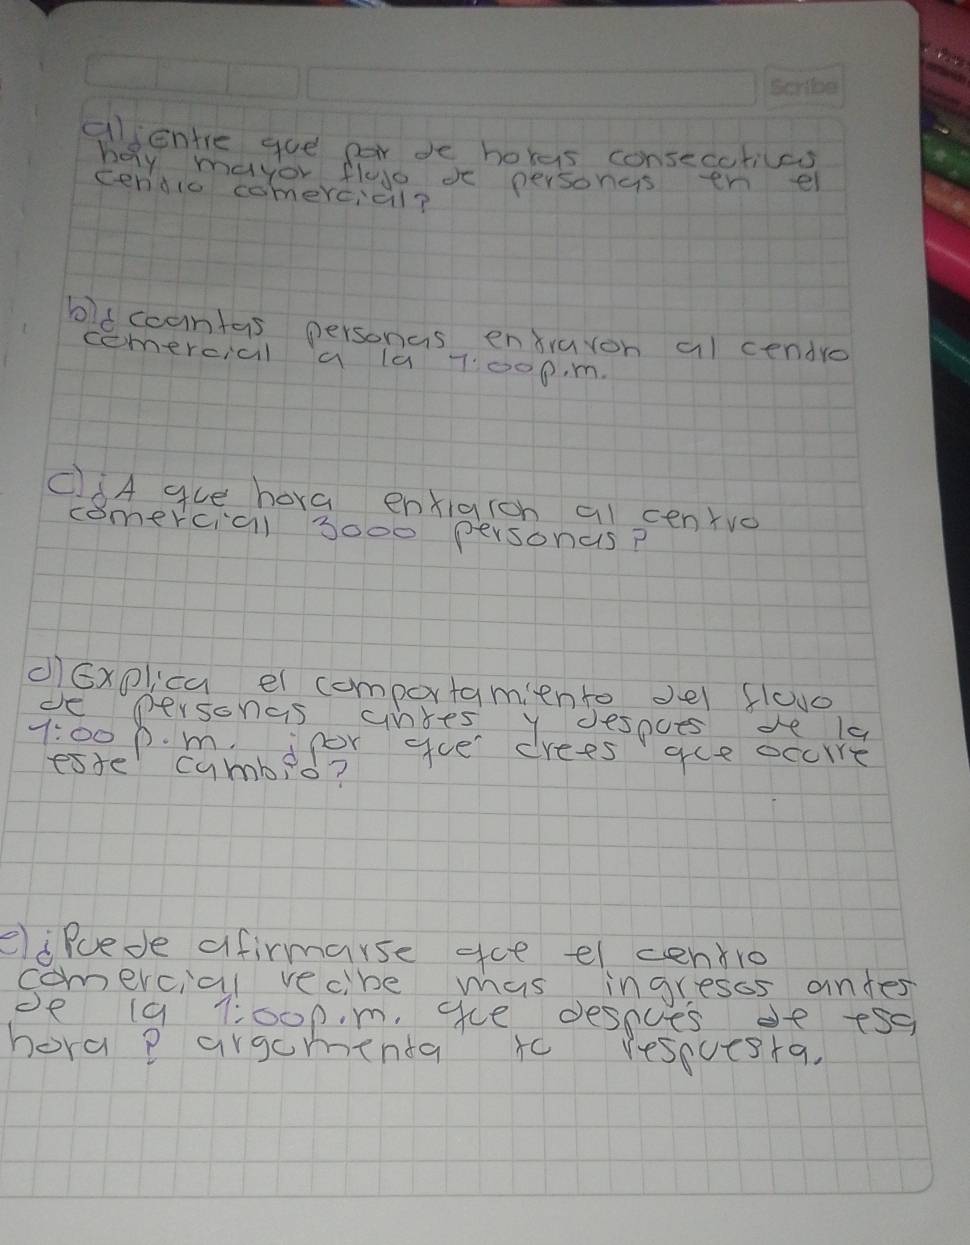 Scribe
a) ¿Entre que par de horas consecutivas
hay mayor flujo de personas en el
centro comercial?
b) ¿cuantas personas entraron al centro
comercial a la 1:00p.m.
c) ¿A que hora entraron al centro
comercial 3000 personas?
d) Explica el comportamiento del flujo
de personas antes y despues de la
1:00 p.m. ¿por que crees que ocurre
este cambio?
e) ¿Puede afirmarse que el centro
comercial recibe mas ingresos antes
de la 1:00p.m. que después de esa
hora? argumenta tu respuesta.